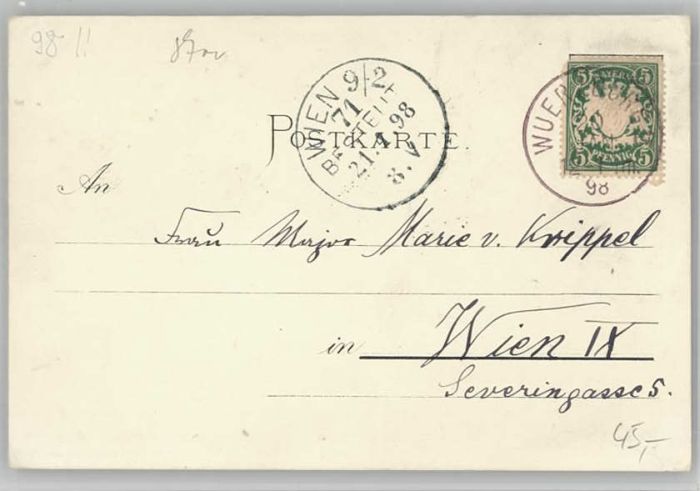 98 !!
WIEN 9/2
71
21. 98
8. V
BAYERN
5 5
PFENNIG
5 5
98
POSTKARTE.
An
Frau Major Marie v. Krippel
in Wien IX
Severingasse 5.
45,-